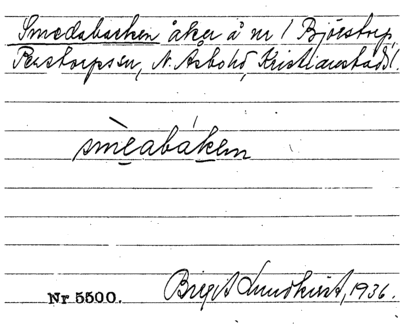 Smedabacken åker å nr 1 Björstorp,
Perstorps sn, N. Åsbo hd, Kristianstads l.
smèabákem
Nr 5500. Birgit Lundkvist, 1936.